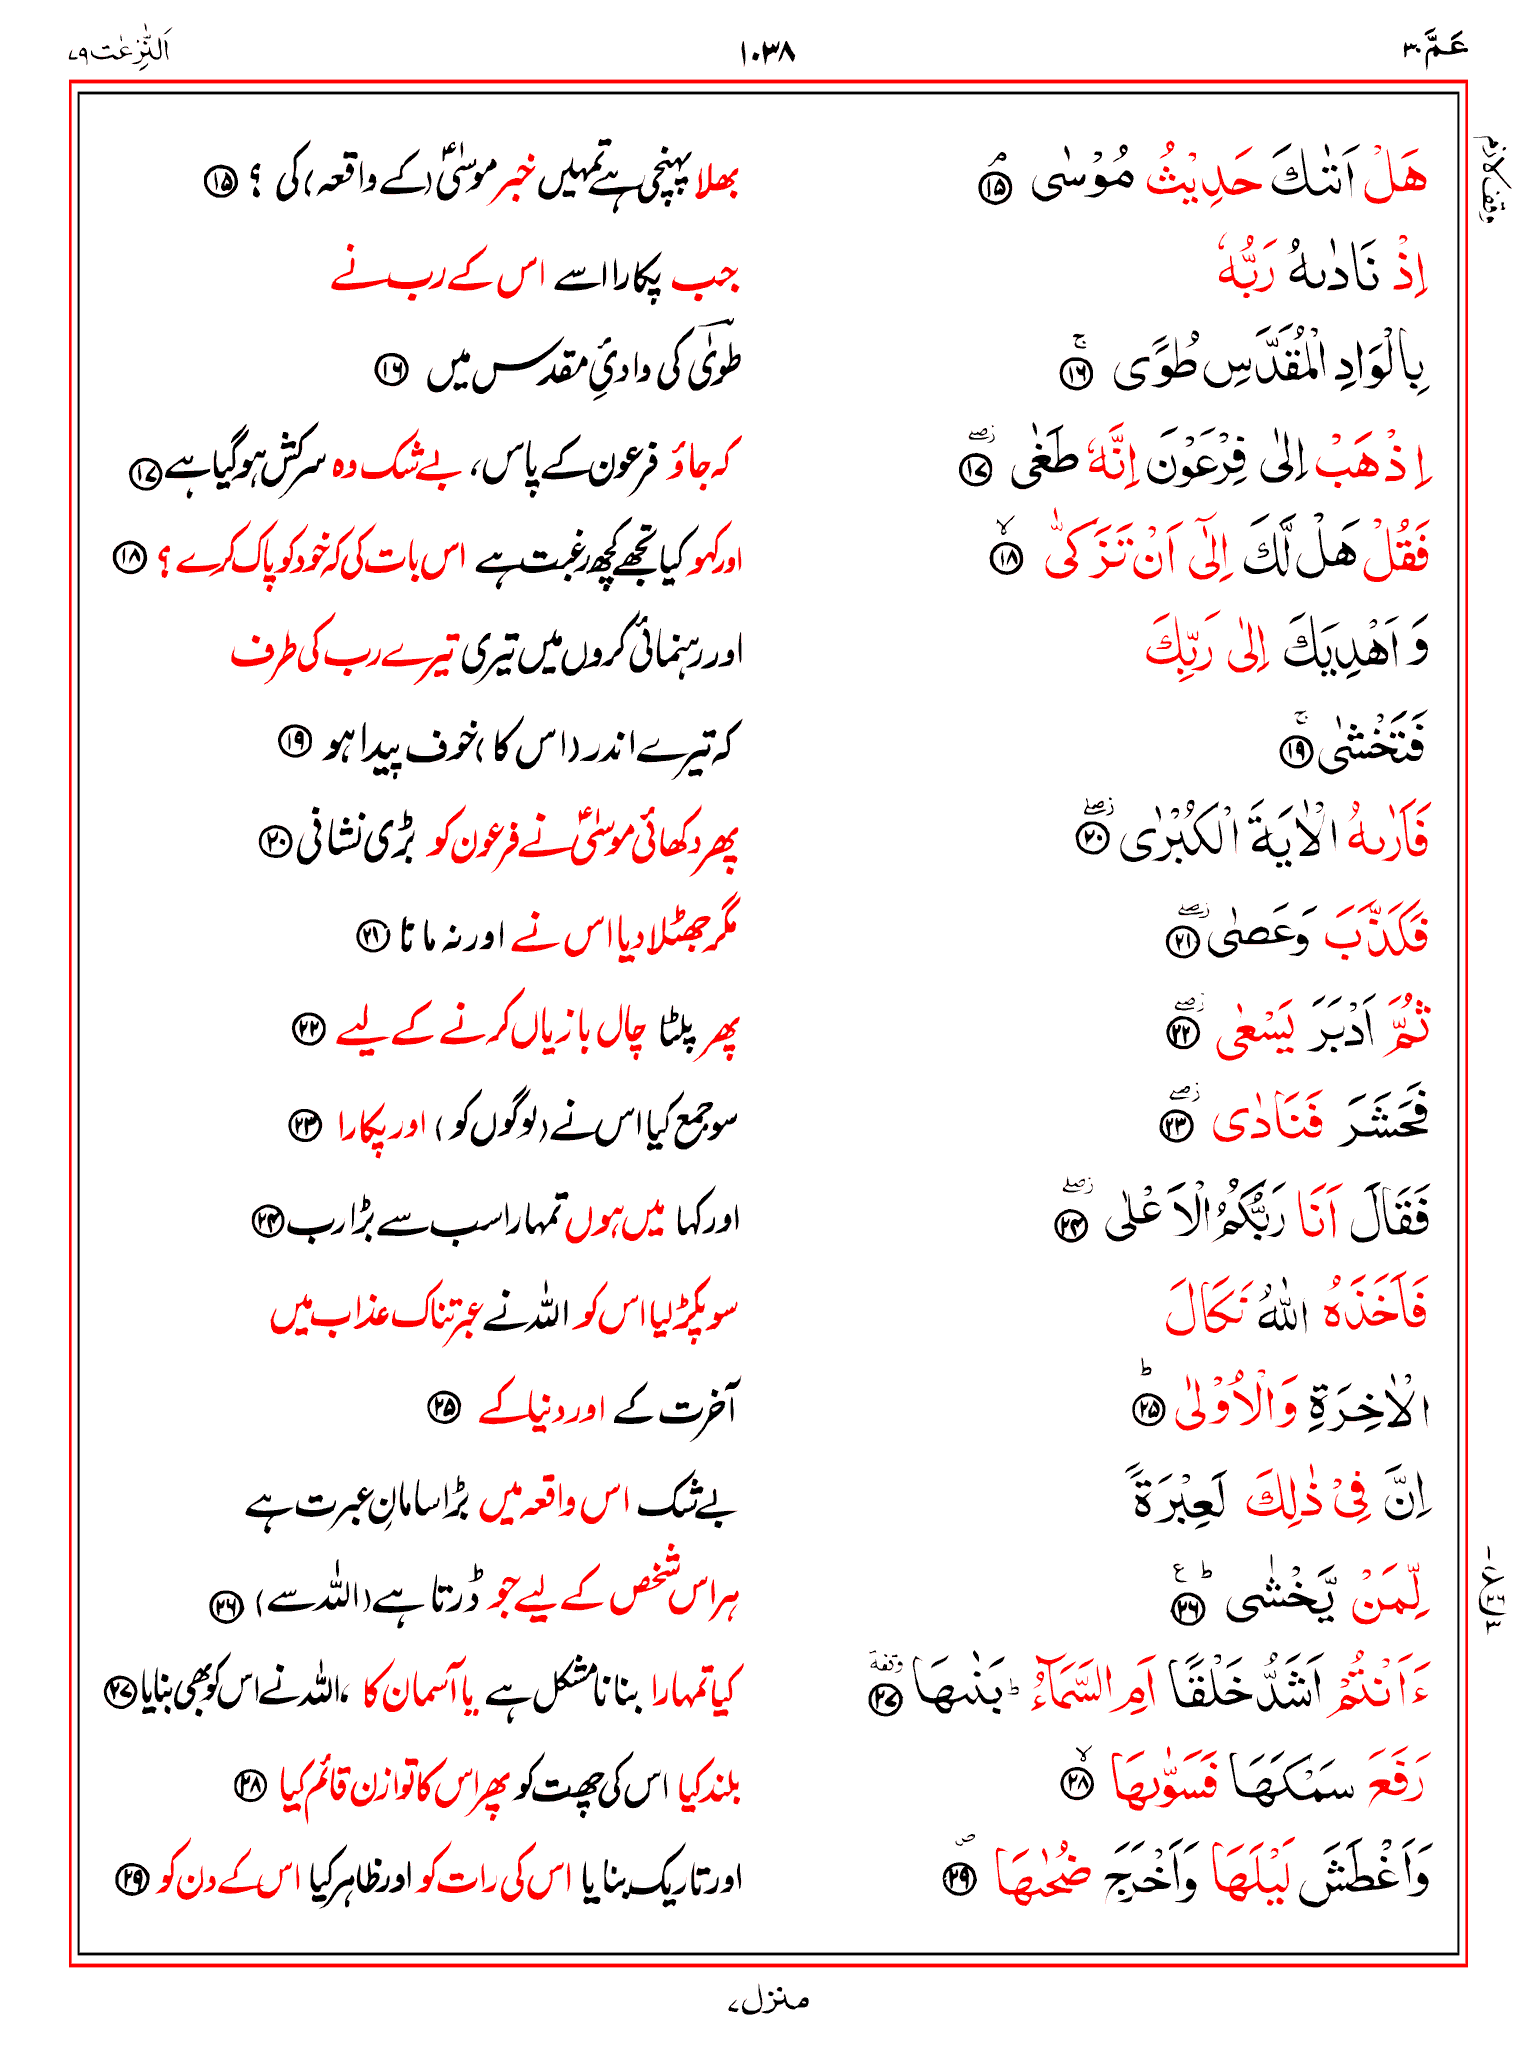 عَمَّ ۳۰ ۱۰۳۸ اَلنّٰزِعٰت ۷۹
وقف لازم
هَلْ اَتٰىكَ حَدِيْثُ مُوْسٰى ۘ ﴿۱۵﴾ بھلا پہنچی ہے تمہیں خبر موسیٰؑ (کے واقعہ) کی ؟ ﴿۱۵﴾
اِذْ نَادٰىهُ رَبُّهٗ جب پکارا اسے اس کے رب نے
بِالْوَادِ الْمُقَدَّسِ طُوًى ۚ ﴿۱۶﴾ طویٰ کی وادئِ مقدس میں ﴿۱۶﴾
اِذْهَبْ اِلٰى فِرْعَوْنَ اِنَّهٗ طَغٰى ۖز ﴿۱۷﴾ کہ جاؤ فرعون کے پاس، بے شک وہ سرکش ہو گیا ہے ﴿۱۷﴾
فَقُلْ هَلْ لَّكَ اِلٰٓى اَنْ تَزَكّٰى ۙ ﴿۱۸﴾ اور کہو کیا تجھے کچھ رغبت ہے اس بات کی کہ خود کو پاک کرے ؟ ﴿۱۸﴾
وَ اَهْدِيَكَ اِلٰى رَبِّكَ اور رہنمائی کروں میں تیری تیرے رب کی طرف
فَتَخْشٰى ۚ ﴿۱۹﴾ کہ تیرے اندر (اس کا) خوف پیدا ہو ﴿۱۹﴾
فَاَرٰىهُ الْاٰيَةَ الْكُبْرٰى ۖز ﴿۲۰﴾ پھر دکھائی موسیٰؑ نے فرعون کو بڑی نشانی ﴿۲۰﴾
فَكَذَّبَ وَعَصٰى ۖز ﴿۲۱﴾ مگر جھٹلا دیا اس نے اور نہ مانا ﴿۲۱﴾
ثُمَّ اَدْبَرَ يَسْعٰى ۖز ﴿۲۲﴾ پھر پلٹا چال بازیاں کرنے کے لیے ﴿۲۲﴾
فَحَشَرَ فَنَادٰى ۖز ﴿۲۳﴾ سو جمع کیا اس نے (لوگوں کو) اور پکارا ﴿۲۳﴾
فَقَالَ اَنَا رَبُّكُمُ الْاَعْلٰى ۖز ﴿۲۴﴾ اور کہا میں ہوں تمہارا سب سے بڑا رب ﴿۲۴﴾
فَاَخَذَهُ اللّٰهُ نَكَالَ سو پکڑ لیا اس کو اللہ نے عبرتناک عذاب میں
الْاٰخِرَةِ وَالْاُوْلٰى ؕ ﴿۲۵﴾ آخرت کے اور دنیا کے ﴿۲۵﴾
اِنَّ فِيْ ذٰلِكَ لَعِبْرَةً بے شک اس واقعہ میں بڑا سامانِ عبرت ہے
لِّمَنْ يَّخْشٰى ؕ ع ﴿۲۶﴾ ہر اس شخص کے لیے جو ڈرتا ہے (اللہ سے) ﴿۲۶﴾
ءَاَنْتُمْ اَشَدُّ خَلْقًا اَمِ السَّمَآءُ ؕ بَنٰىهَا وقفة ﴿۲۷﴾ کیا تمہارا بنانا مشکل ہے یا آسمان کا ،اللہ نے اس کو بھی بنایا ﴿۲۷﴾
رَفَعَ سَمْكَهَا فَسَوّٰىهَا ۙ ﴿۲۸﴾ بلند کیا اس کی چھت کو پھر اس کا توازن قائم کیا ﴿۲۸﴾
وَاَغْطَشَ لَيْلَهَا وَاَخْرَجَ ضُحٰىهَا ص ﴿۲۹﴾ اور تاریک بنایا اس کی رات کو اور ظاہر کیا اس کے دن کو ﴿۲۹﴾
منزل ۷